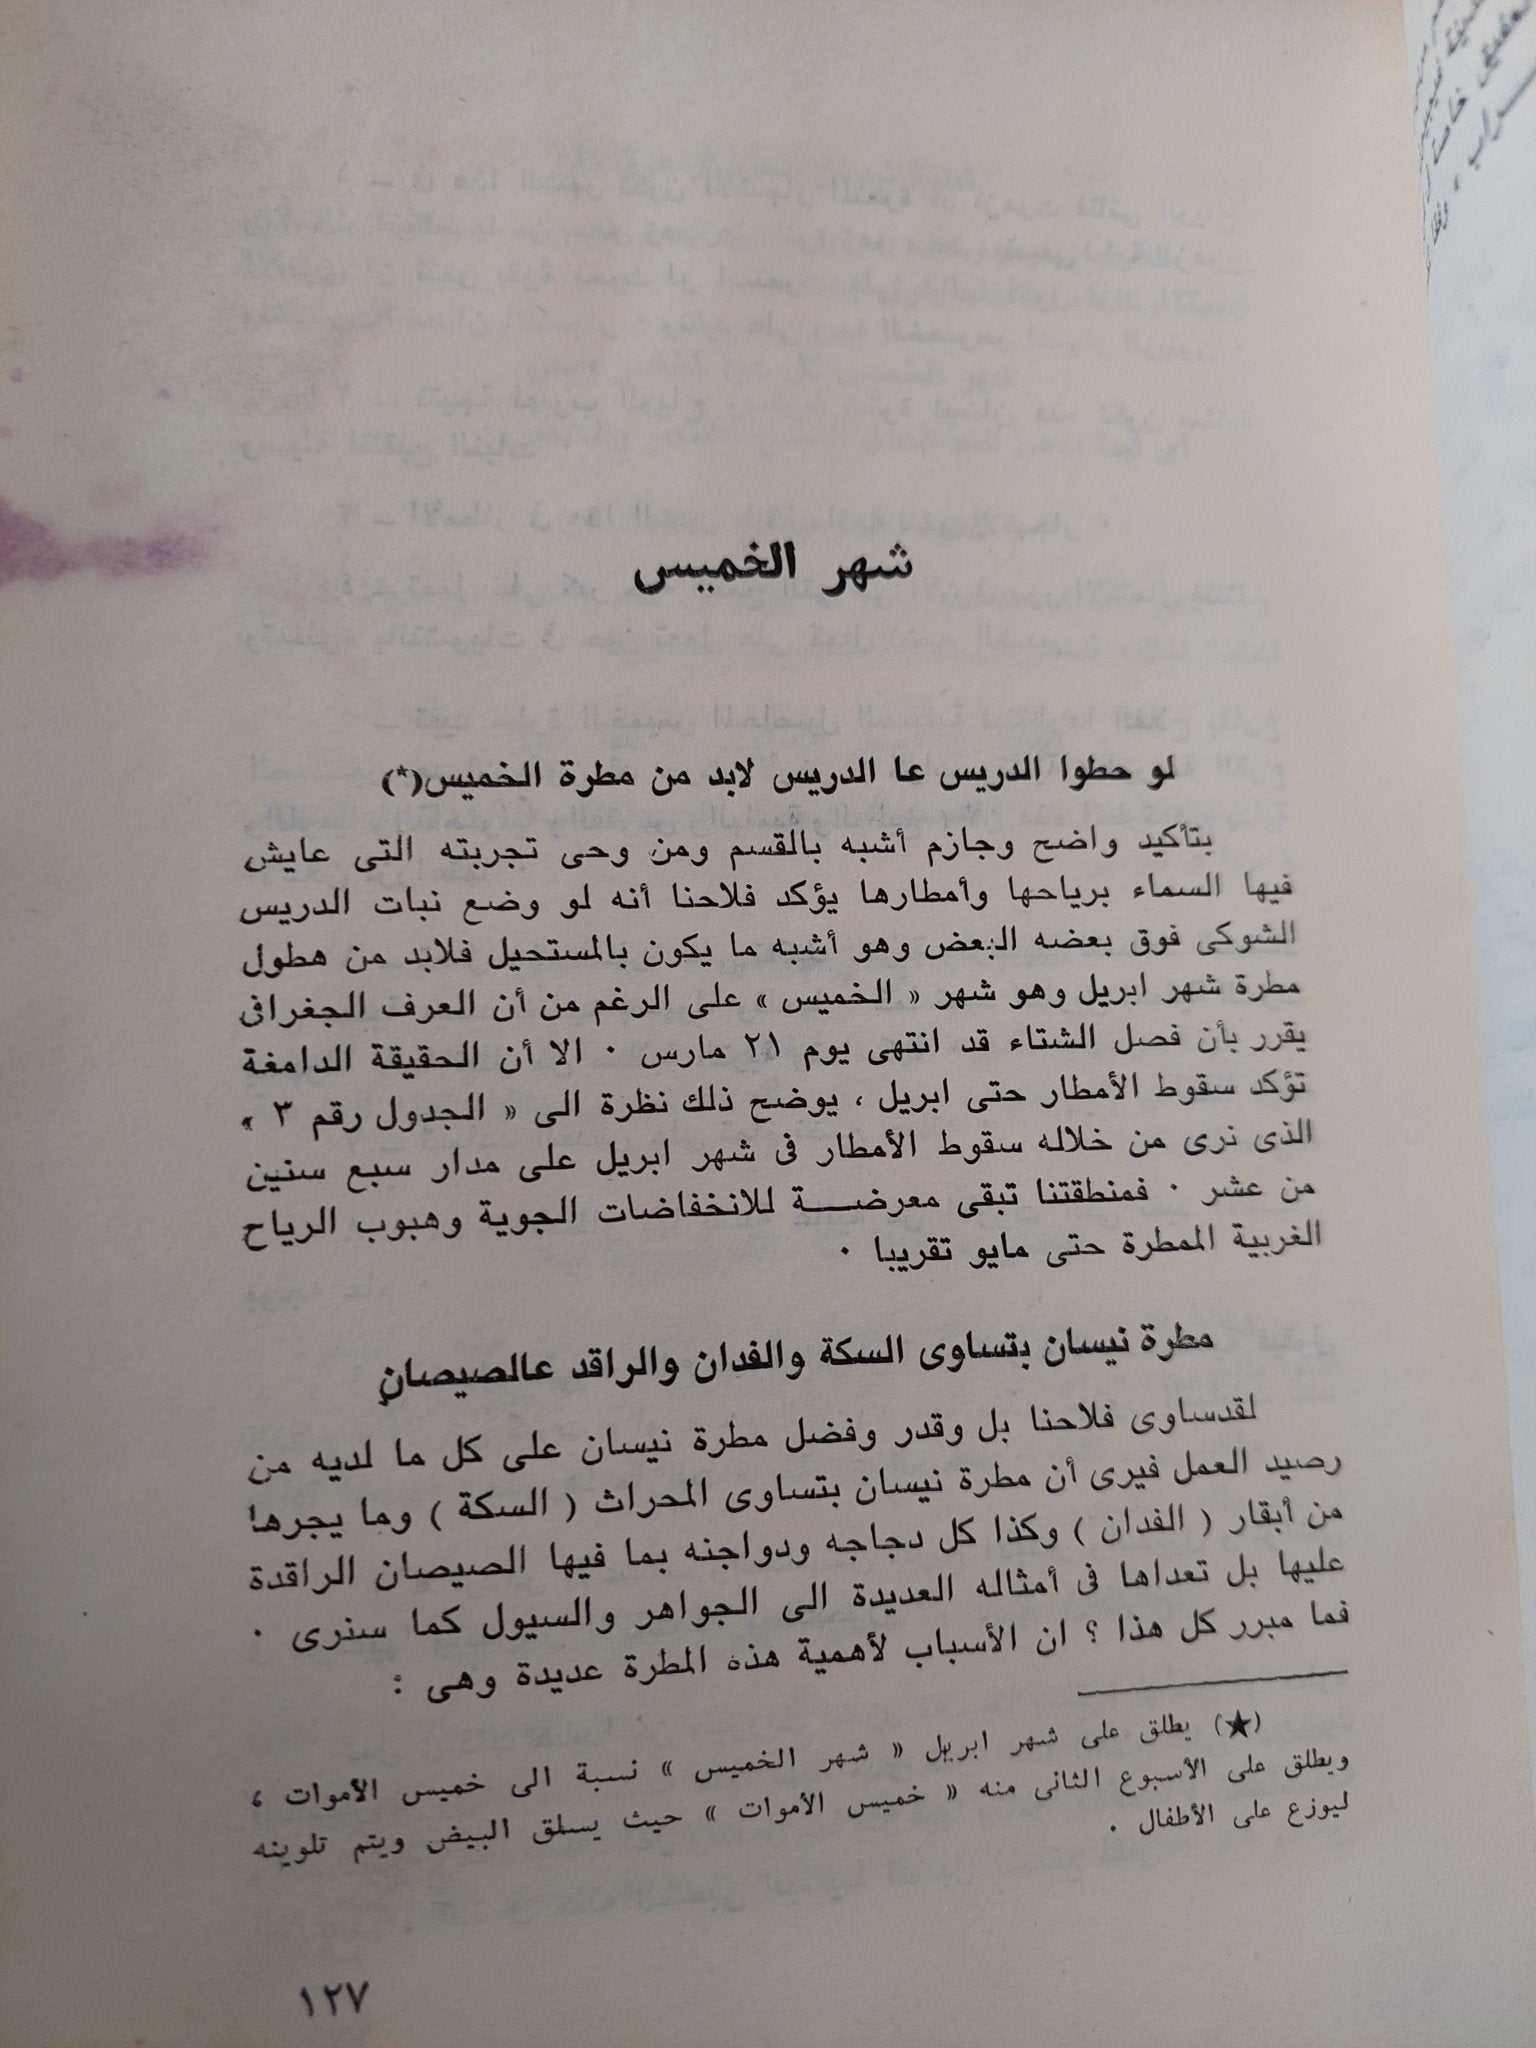 شهر الخميس
لو حطوا الدريس عا الدريس لابد من مطرة الخميس(*)
بتأكيد واضح وجازم أشبه بالقسم ومن وحى تجربته التى عايش
فيها السماء برياحها وأمطارها يؤكد فلاحنا أنه لو وضع نبات الدريس
الشوكى فوق بعضه البعض وهو أشبه ما يكون بالمستحيل فلابد من هطول
مطرة شهر ابريل وهو شهر « الخميس » على الرغم من أن العرف الجغرافى
يقرر بأن فصل الشتاء قد انتهى يوم ٢١ مارس ٠ الا أن الحقيقة الدامغة
تؤكد سقوط الأمطار حتى ابريل ، يوضح ذلك نظرة الى « الجدول رقم ٣ »
الذى نرى من خلاله سقوط الأمطار فى شهر ابريل على مدار سبع سنين
من عشر ٠ فمنطقتنا تبقى معرضـــة للانخفاضات الجوية وهبوب الرياح
الغربية الممطرة حتى مايو تقريبا ٠
مطرة نيسان بتساوى السكة والفدان والراقد عالصيصان
لقدساوى فلاحنا بل وقدر وفضل مطرة نيسان على كل ما لديه من
رصيد العمل فيرى أن مطرة نيسان بتساوى المحراث ( السكة ) وما يجرها
من أبقار ( الفدان ) وكذا كل دجاجه ودواجنه بما فيها الصيصان الراقدة
عليها بل تعداها فى أمثاله العديدة الى الجواهر والسيول كما سنرى ٠
فما مبرر كل هذا ؟ ان الأسباب لأهمية هذه المطرة عديدة وهى :
(★) يطلق على شهر ابريل « شهر الخميس » نسبة الى خميس الأموات ،
ويطلق على الأسبوع الثانى منه « خميس الأموات » حيث يسلق البيض ويتم تلوينه
ليوزع على الأطفال ٠
١٢٧